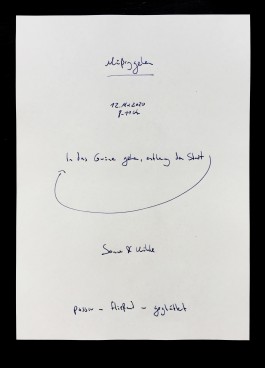 Müßiggehen
12.11.2020
9-11 Uhr
In das Grüne gehen, entlang der Stadt
Sonne & Kälte
passiv - fließend - geglättet